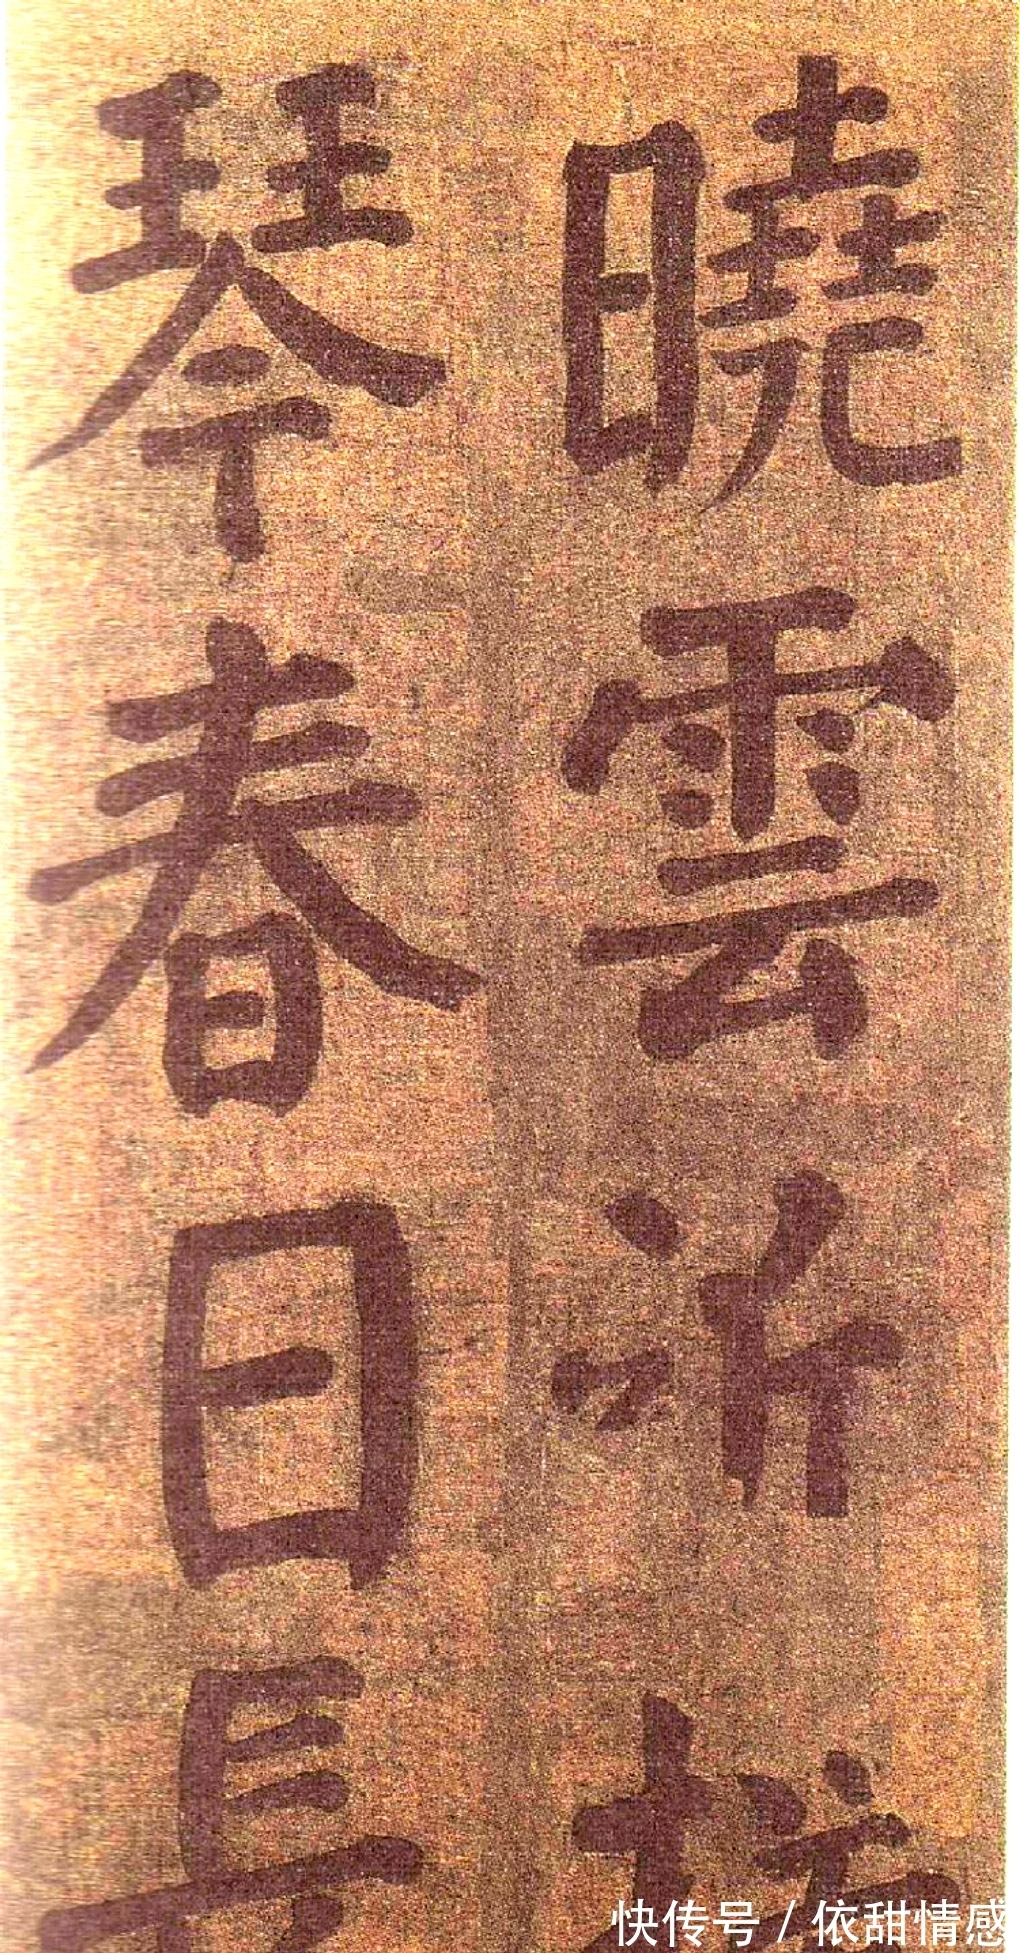 曉雲
琴春日長
快传号 / 依甜情感